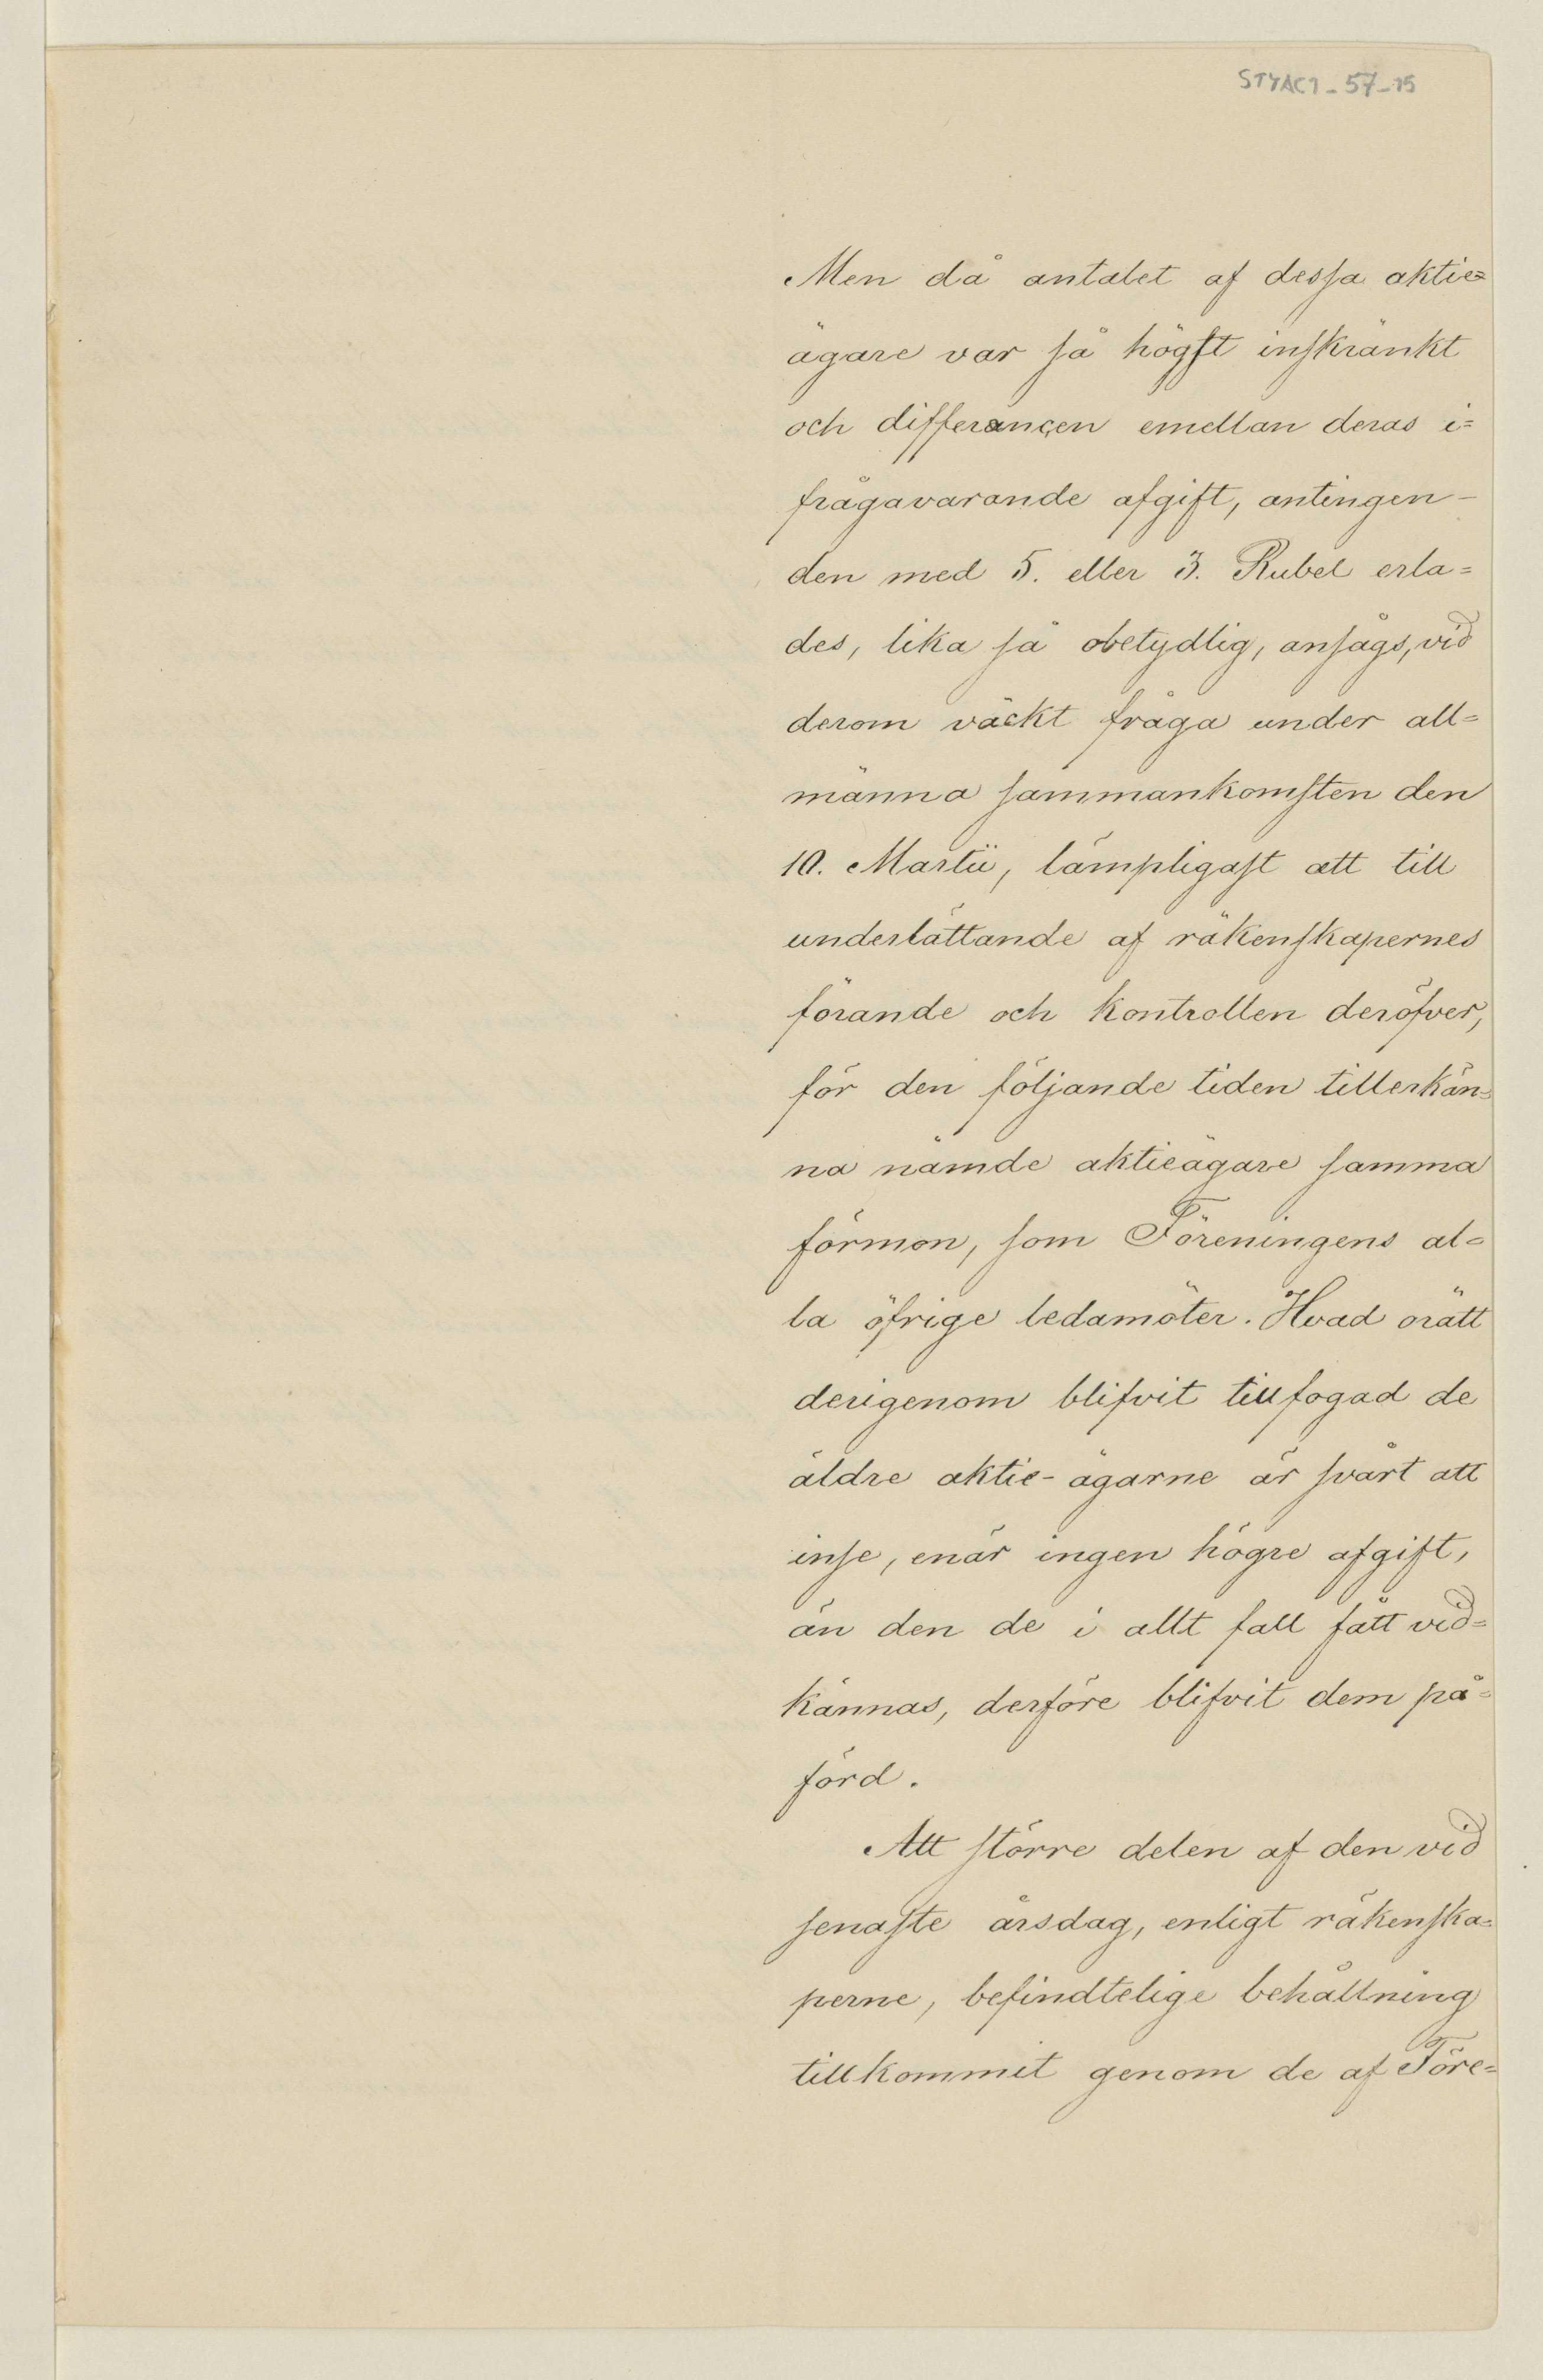 STYAC1_57_15
Men då antalet af dessa aktie=
ägare var så högst inskränkt
och differançen emellan deras i=
frågavarande afgift, antingen-
den med 5. eller 3. Rubel erla=
des, lika så obetydlig, ansågs, vid
derom väckt fråga under all=
männa sammankomsten den
10. Martii, lämpligast att till
underlättande af räkenskapernes
förande och kontrollen deröfver,
för den följande tiden tillerkän=
na nämde aktieägare samma
förmon, som Föreningens al=
la öfrige ledamöter. Hvad orätt
derigenom blifvit tillfogad de
äldre aktie-ägarne är svårt att
inse, enär ingen högre afgift,
än den de i allt fall fått vid=
kännas, derföre blifvit dem på=
förd.
Att större delen af den vid
senaste årsdag, enligt räkenska=
perne, befindtelige behållning
tillkommit genom de af Före=